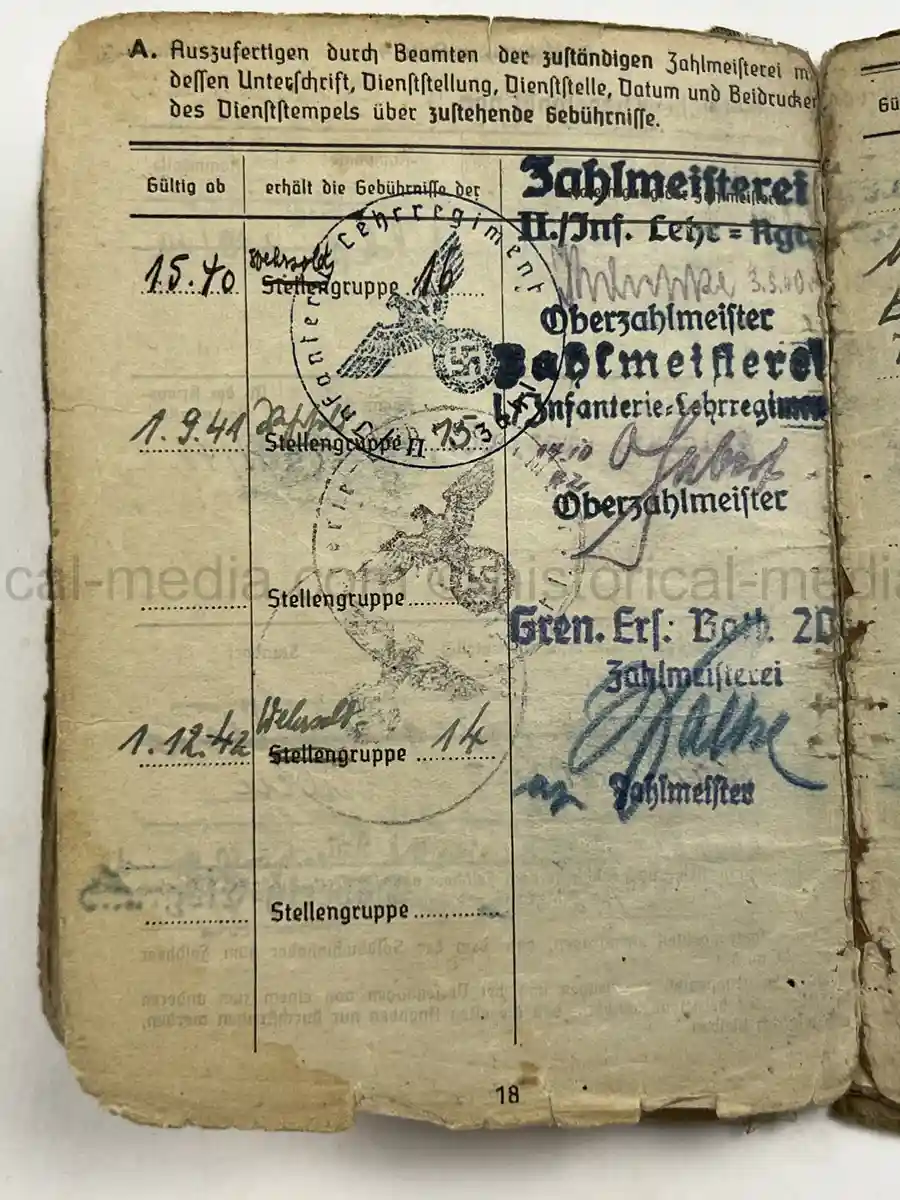 A. Auszufertigen durch Beamten der zuständigen Zahlmeisterei m
dessen Unterschrift, Dienststellung, Dienststelle, Datum und Beidrucken
des Dienststempels über zustehende Gebührnisse.
Gültig ab
erhält die Gebührnisse der
Zahlmeisterei
II./Inf. Lehr=Rgt.
1.5.40 Wehrsold Stellengruppe 16
3.5.40
Oberzahlmeister
Infanterie Lehrregiment
Zahlmeisterei
Infanterie-Lehrregiment
1.9.41
Stellengruppe 15
Oberzahlmeister
Stellengruppe
Gren. Ers. Batl. 20
Zahlmeisterei
1.12.42 Wehrsold Stellengruppe 14
Zahlmeister
Stellengruppe
18
Gü
cal-media.com ©historical-media